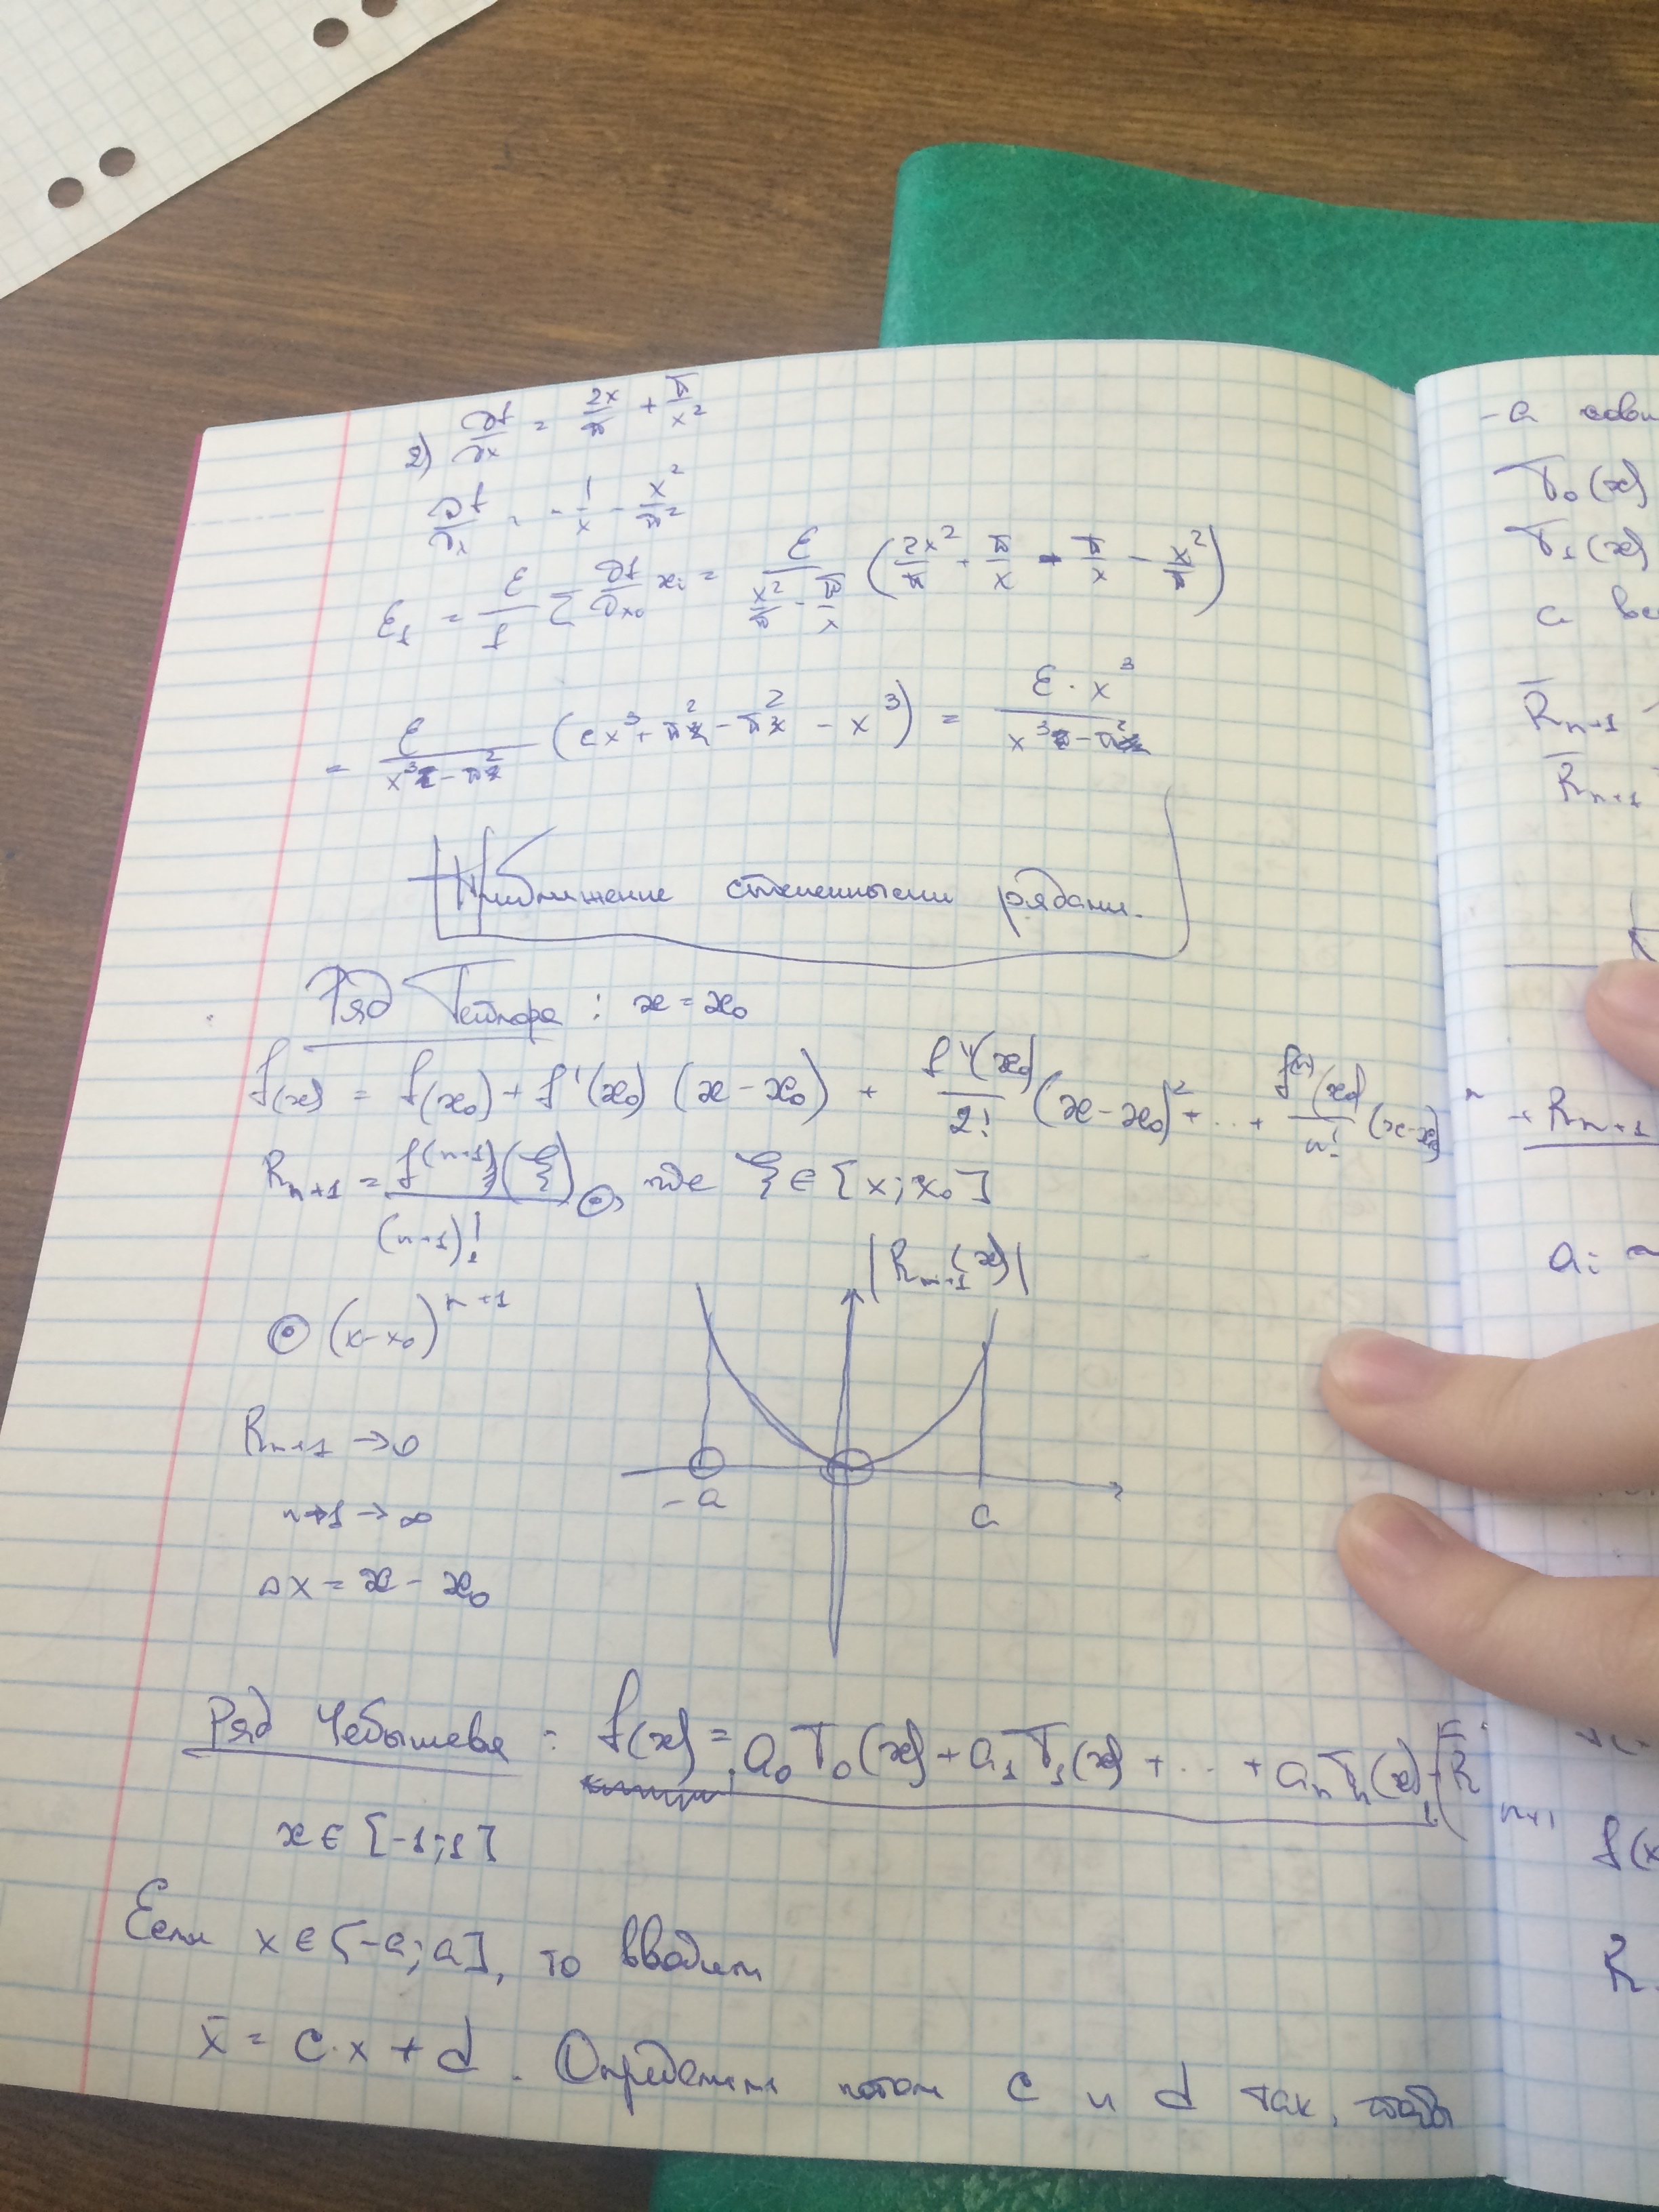 2) ∂f/∂x = 2x/π + π/x²
∂f/∂x = -1/x - x²/π²
ε_f = ε/f Σ ∂f/∂x₀ xᵢ = ε/(x²/π - π/x) (2x²/π + π/x - π/x - x²/π)
= ε/(x³ - π²) (2x³ + π² - π² - x³) = ε·x³/(x³ - π²)
Приближение степенными рядами.
Ряд Тейлора: x = x₀
f(x) = f(x₀) + f'(x₀) (x - x₀) + f''(x₀)/2! (x - x₀)² + ... + f⁽ⁿ⁾(x₀)/n! (x - x₀)ⁿ + R_{n+1}
R_{n+1} = f^{(n+1)}(ξ)/(n+1)! ⊙, где ξ ∈ [x; x₀]
|R_{n+1}(x)|
⊙ (x - x₀)^{n+1}
R_{n+1} → 0
-a
a
n+1 → ∞
Δx = x - x₀
Ряд Чебышева: f(x) = a₀T₀(x) + a₁T₁(x) + ... + aₙTₙ(x) + R̄_{n+1}
x ∈ [-1; 1]
Если x ∈ [-a; a], то вводим
x̄ = c·x + d. Определим потом c и d так, чтобы
-a
T₀(x)
T₁(x)
a
R̄_{n+1}
R̄_{n+1}